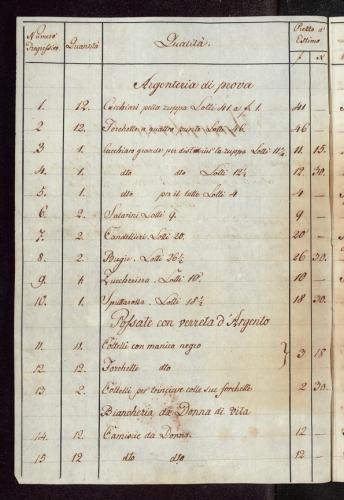 Numero Progressivo. Quantità Qualità. Prezzo d' Estimo
f x
Argenteria di prova
1. 12. Cucchiari pella zuppa Lotti 41. a f. 1. 41
2 12. Forchette a quattro punte Lotti 46. 46 -
3 1. Cucchiaro grande per distribuir la zuppa Lotti 11¼. 11. 15.
4. 1. dto dto Lotti 12½ 12 30.
5. 1. dto per il latte Lotti 4 4 -
6. 2. Salarini Lotti 9. 9 -
7. 2. Candellieri Lotti 20. 20 -
8. 2. Bugie. Lotti 26½ 26 30.
9. 1. Zuccheriera. Lotti 10. 10 -
10. 1. Lotti 18½ 18 30.
Possate con verreta d'Argento
11. 11. Coltelli con manico negro
12. 12. Forchette dto } 3 18
13. 2. Coltelli per trinciare colle sue forchette 2 30.
Biancheria da Donna di vita
14. 12. Camicie da Donna. 12 -
15 12 dto dto 12